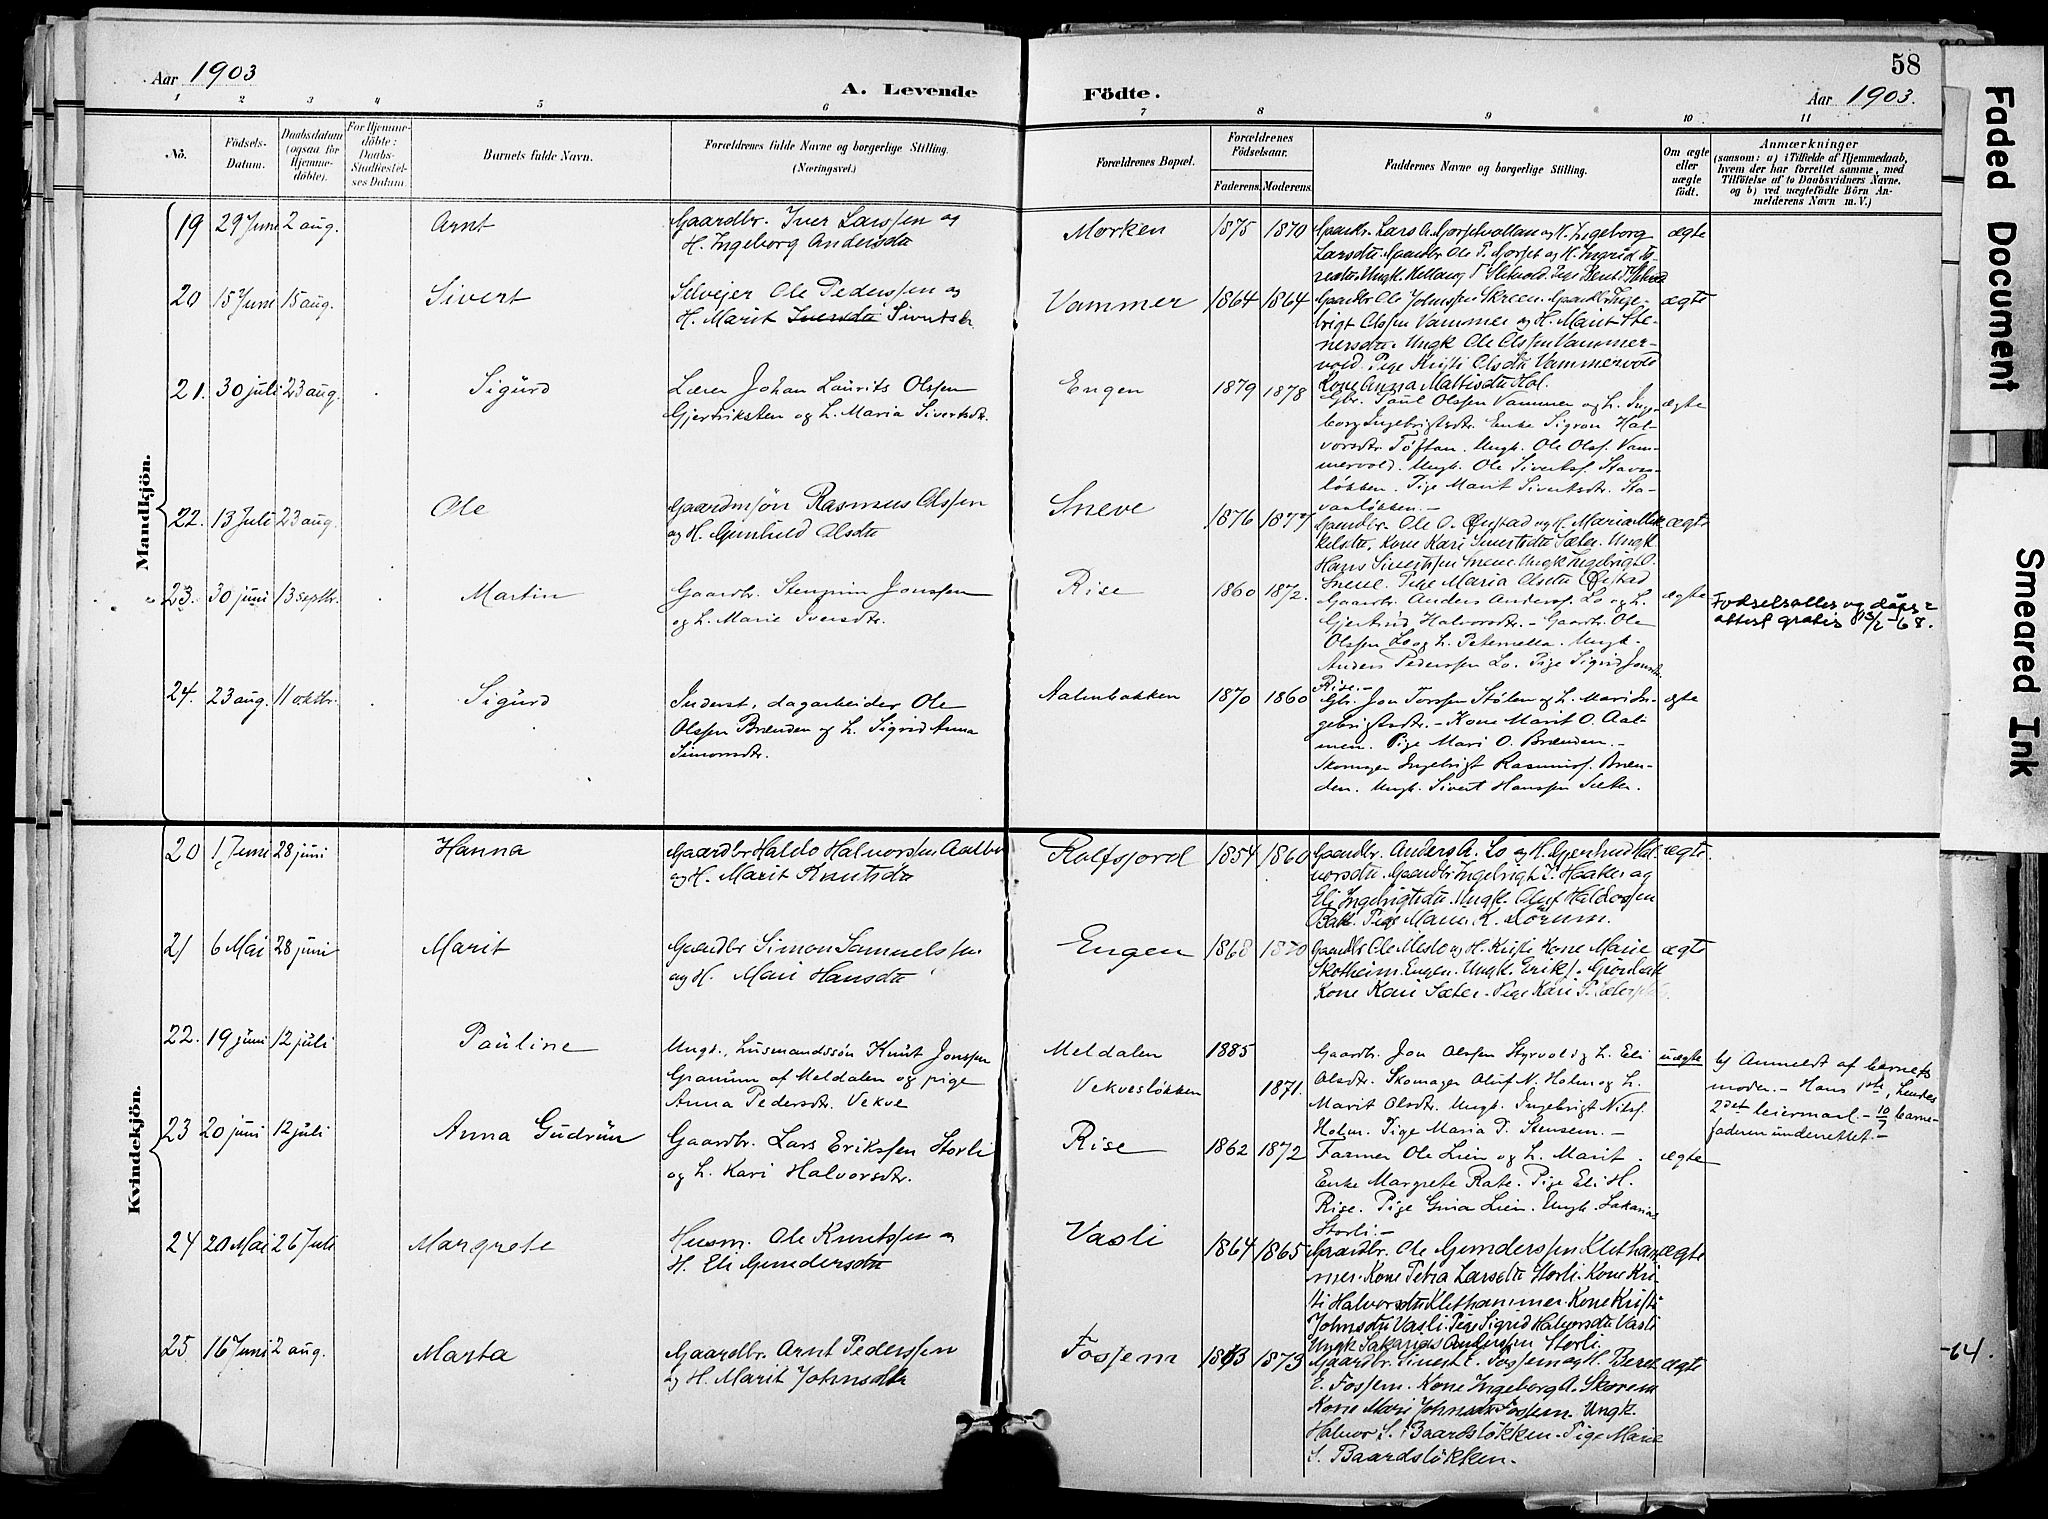 58
Aar 1903
A. Levende Födte.
Aar 1903.
1 2 3 4 5 6 7 8 9 10 11
No.
Födsels-
Datum.
Daabsdatum
(ogsaa for
Hjemme-
döbte).
For Hjemme-
döbte:
Daabs-
Stadfæstel-
ses Datum.
Barnets fulde Navn.
Forældrenes fulde Navne og borgerlige Stilling.
(Næringsvei.)
Forældrenes Bopæl.
Forældrenes
Födselsaar.
Faderens. Moderens.
Faddernes Navne og borgerlige Stilling.
Om ægte
eller
uægte
födt.
Anmærkninger
(saasom: a) i Tilfælde af Hjemmedaab,
hvem der har forrettet samme, med
Tilföielse af to Daabsvidners Navne,
og b) ved uægtefödte Börn An-
melderens Navn m. V.)
Mandkjön.
19 29 Juni 2 aug. Arnt
Gaardbr. Iver Larssen og
H. Ingeborg Andersdtr
Morken 1875 1870
Gaardbr. Lars A. Gorsetvollan og H. Ingeborg
Larsdtr. Gaardbr Ole P. Gorset og H. Ingrid
ægte
20 15 Juni 15 aug. Sivert
Selvejer Ole Pederssen og
H. Marit Iversdtr Sivertsdtr
Vammer 1864 1864
Gaardbr Ole Johnssen Skreen. Gaardbr Inge-
brigt Olssen Vammer og H. Marit Ste-
nersdtr. Ungk Ole Olssen Vammer-
vold. Pige Kristi Olsdtr Vammervold
Kone Anna Mattisdtr Hol.
ægte
21. 30 juli 23 aug. Sigurd
Lærer Johan Laurits Olssen
Gjertriksten og h. Maria Sivertsdtr.
Engen 1879 1878
Gbr. Paul Olssen Vammer og h. Inge-
borg Ingebrigtsdtr. Enke Sigron Hal-
vorsdtr. Töftan. Ungk. Ole Olss. Vam-
mervold. Ungk. Ole Sivertss. Stavaa-
løkken. Pige Marit Sivertsdtr. Sta-
vaaløkken. -
ægte
22. 13 Juli 23 aug. Ole
Gaardmsøn Rasmus Olssen
og H. Gunhild Olsdtr
Sneve 1876 1877
Gaardbr. Ole O. Øistad og H. Maria Mik-
kelsdtr. Kone Kari Sivertsdtr Sæter. Ungk
Hans Sivertssen Sneve. Ungk Ingebrigt O.
Sneve. Pige Maria Olsdtr Øistad
ægte
23. 30 juni 13 septbr. Martin
Gaardbr. Stengrim Jonssen
og h. Marie Iversdtr.
Rise 1860 1872.
Gaardbr. Anders Anderss. Lo og h.
Gjertrud Halvorsdtr. - Gaardbr. Ole
Olssen Lo og h. Peternella. Ungk.
Anders Pederssen Lo. Pige Sigrid Jonsdtr.
Rise. -
ægte
Fødselsattes og dåps-
attest gratis 13/2-68.
24. 23 aug. 11 oktbr. Sigurd
Inderst, dagarbeider Ole
Olssen Brænden og h. Sigrid Anna
Simonsdtr.
Aalmbakken 1870 1860
Gbr. Jon Torssen Stølen og h. Mari In-
gebrigtsdtr. - Kone Marit O. Aal-
men. Pige Mari O. Brænden. -
Skomager Ingebrigt Rasmuss. Bræn-
den. Ungk. Sivert Hanssen Sæter.
ægte
Kvindekjön.
20 1 Juni 28 juni Hanna
Gaardbr Haldo Halvorssen Aalbu
og H. Marit Knutsdtr
Rolfsjord 1854 1860
Gaardbr. Anders A. Lo og H. Gjertrud Hal-
vorsdtr. Gaardbr Ingebrigt I. Haaker og
Eli Ingebrigtsdtr. Ungk. Oluf Haldossen
Bakk. Pige Mari K. Dörum.
ægte.
21 6 Mai 28 juni Marit
Gaardbr Simon Samuelssen
og H. Mari Hansdtr
Engen 1868 1870
Gaardbr Ole Meslo og H. Kristi Kone Marie
Skotheim Engen. Ungk. Erik
Kone Kari Sæter. Pige Kari P.
ægt
22. 19 juni 12 juli Pauline
Ungk., husmandssön Knut Jonssen
Granum af Meldalen og pige
Anna Pedersdtr. Vekve
Meldalen 1885
Vekvesløkken 1871.
Gaardbr. Jon Olssen Styrvold og h. Eli
Olsdtr. Skomager Oluf N. Holm og h.
Marit Olsdtr. Ungk. Ingebrigt Nilss.
Holm. Pige Maria T. Stensem. -
uægte
b) Anmeldt af barnets
moder. - Hans 1ste, hendes
2det leiermaal. - 10/7 barne-
faderen underrettet. -
23 20 juni 12 juli Anna Gudrun
Gaardbr. Lars Erikssen Storli
og h. Kari Halvorsdtr.
Rise 1862 1872
Farmer Ole Lien og h. Marit.
Enke Margrete Rate. Pige Eli H.
Rise. Pige Gina Lien. Ungk. Sakarias
Storli. -
ægte
24 20 Mai 26 Juli Margrete
Husm. Ole Knutssen og
H. Eli Gundersdtr
Vasli 1864 1865
Gaardbr. Ole Gunderssen Kletham-
mer. Kone Petra Larsdtr Storli. Kone Kri-
sti Halvorsdtr Klethammer. Kone Kristi
Johnsdtr Vasli. Pige Sigrid Halvorsdtr Vasli
Ungk Sakarias Anderssen Storli.
ægte
25. 16 Juni 2 aug. Marta
Gaardbr. Arnt Pederssen
og H. Marit Johnsdtr
Fossem 1873
Gaardbr. Sivert E. Fossem og H. Beret
E. Fossem. Kone Ingeborg A. Skorem
Kone Mari Johnsdtr Fossem. Ungk.
Halvor S. Baardsløkken. Pige Marie
S. Baardsløkken. -
ægte
-64.
Faded Document
Smeared Ink